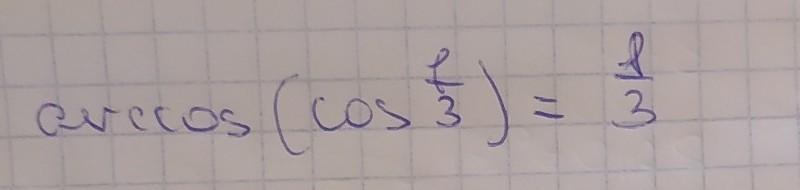 arccos(cos 1/3) = 1/3